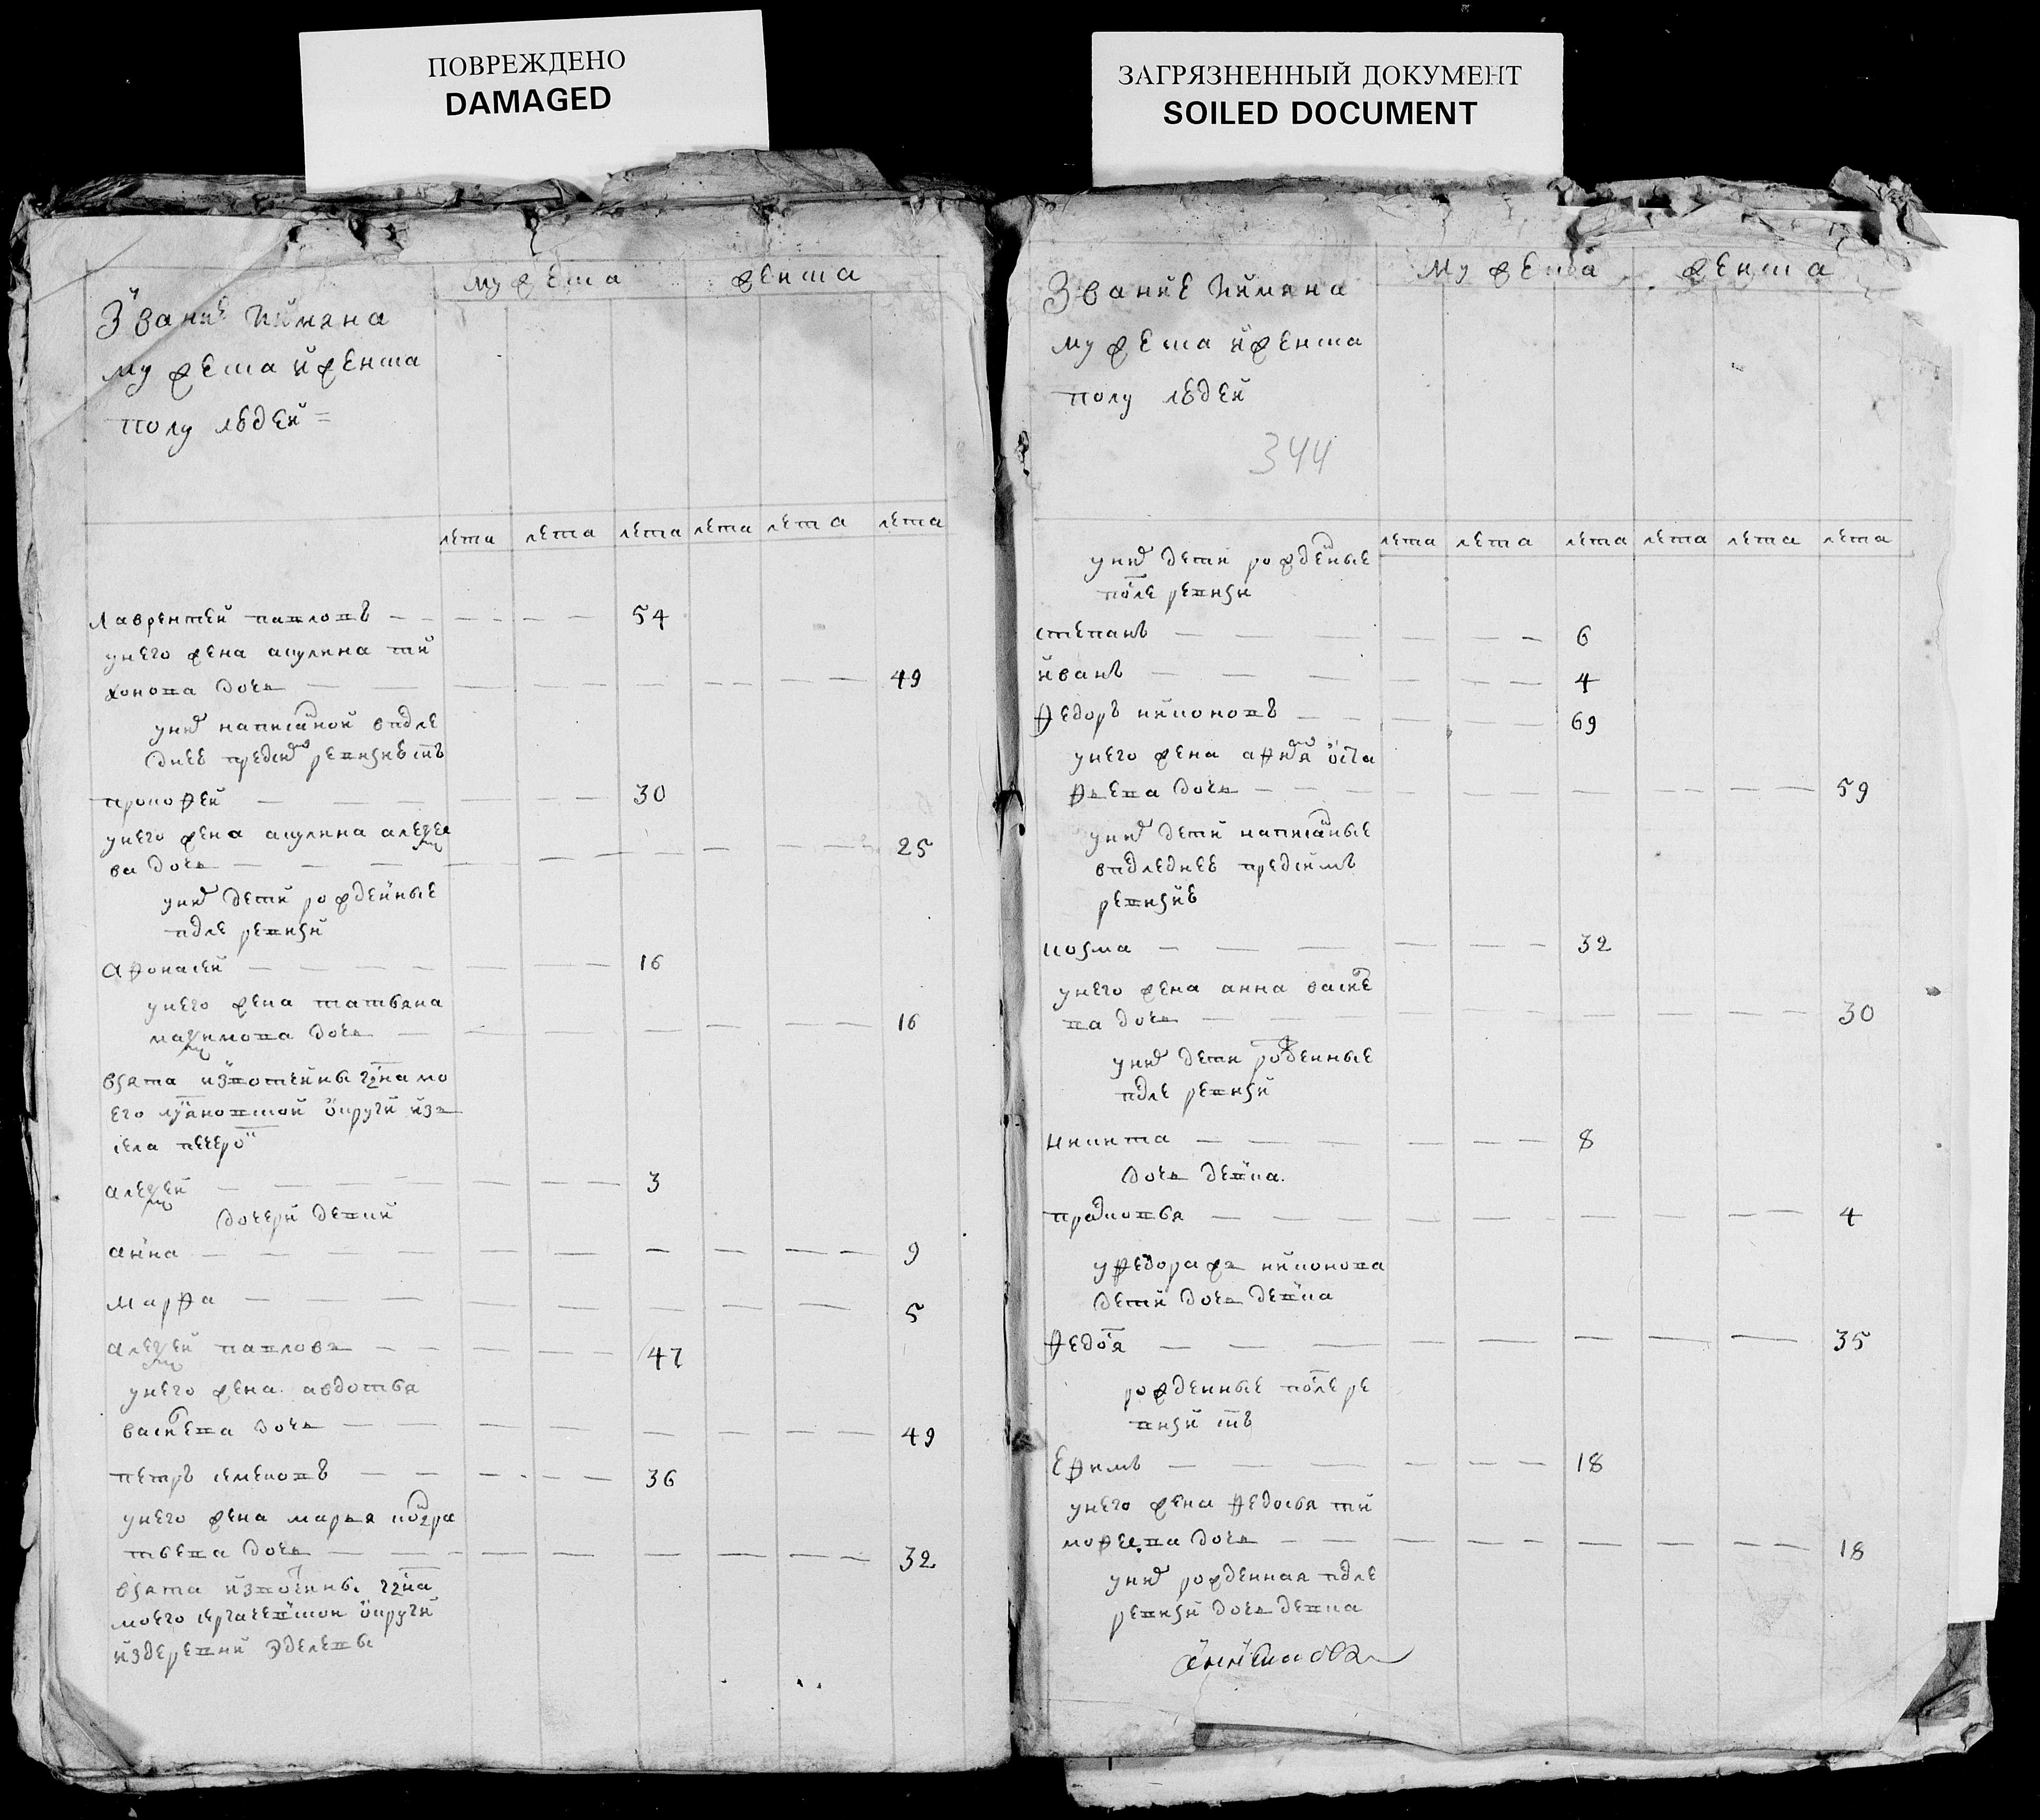 ПОВРЕЖДЕНО
DAMAGED
ЗАГРЯЗНЕННЫЙ ДОКУМЕНТ
SOILED DOCUMENT
Звание иимяна
мужеска иженска
полу людей =
мужеска
женска
лета лета лета лета лета лета
Лаврентей павловъ 54
унего жена акулина ти
хонова дочь 49
уних написаной впосле
днее предсим ревизие снъ
прокофей 30
унего жена акулина алексее
ва дочь 25
уних дети рожденные
после ревизи
Афонасей 16
унего жена татьяна
максимова дочь 16
взята извотчины
его округи из
села
алексей 3
дочери девки
анна 9
марфа 5
алексей павловъ 47
унего жена авдотья
васильева дочь 49
петръ семеновъ 36
унего жена марья кондра
тьева дочь 32
взята извотчины
моего сергачевской округи
издеревни
Звание иимяна
мужеска иженска
полу людей
344
мужеска
женска
лета лета лета лета лета лета
уних дети рожденые
после ревизи
степанъ 6
иванъ 4
Федоръ никоновъ 69
унего жена оста
фьева дочь 59
уних дети написаные
впоследнее предсимъ
ревизие
козма 32
унего жена анна василье
ва дочь 30
уних дети рожденные
после ревизи
никита 8
дочь девка
прасковья 4
уфедора жъ никонова
дети дочь девка
Федосья 35
рожденные после ре
визи снъ
Ефимъ 18
унего жена федосья ти
мофеева дочь 18
уних рожденная после
ревизи дочь девка